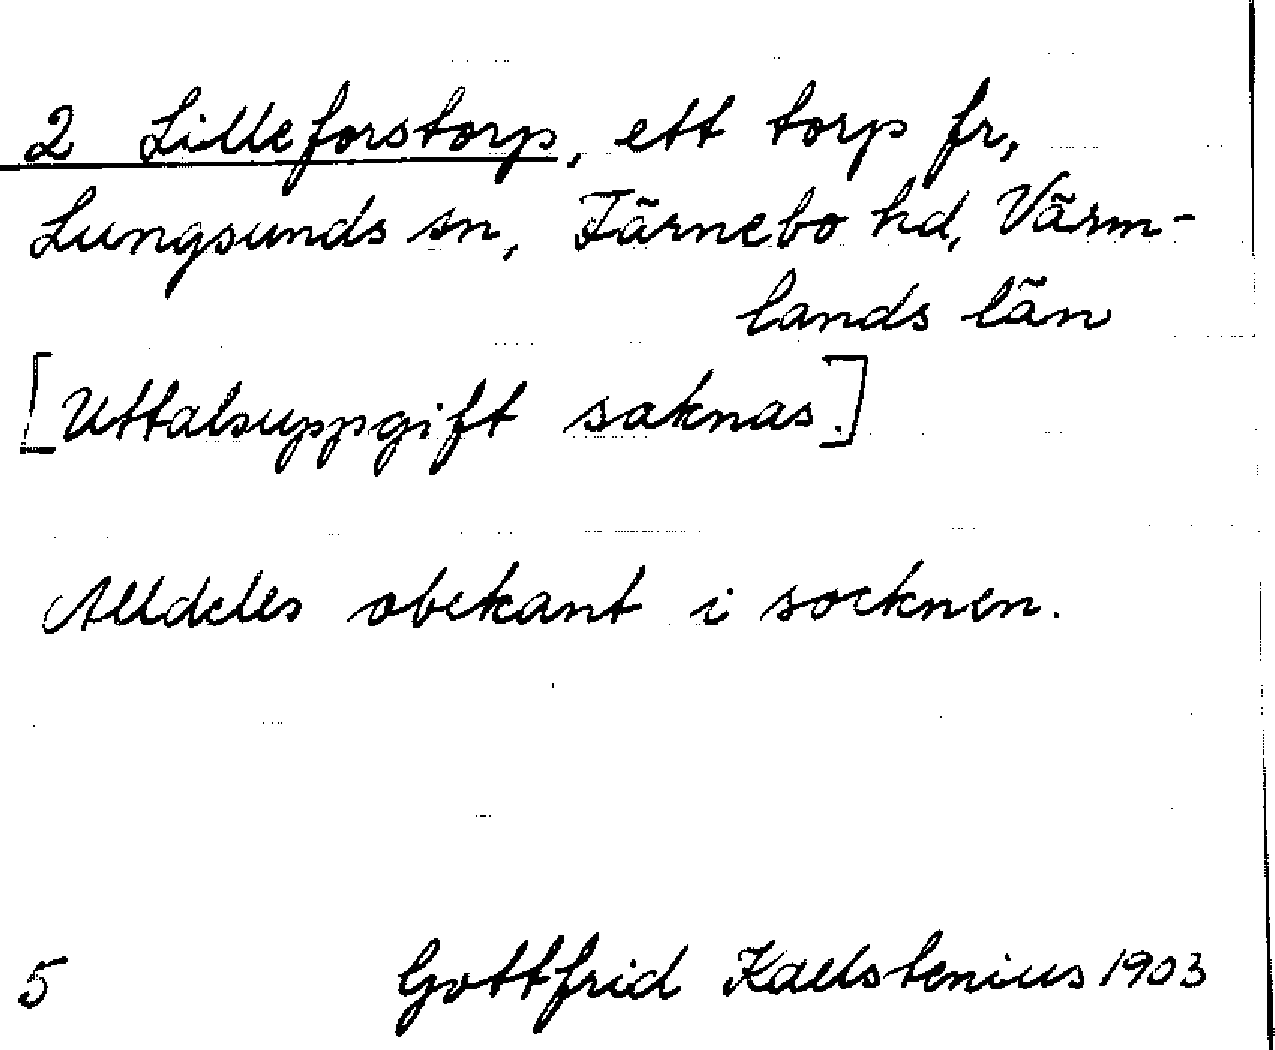 2 Lilleforstorp, ett torp fr,
Lungsunds sn, Färnebo hd, Värm-
lands län
[Uttalsuppgift saknas.]
Alldeles obekant i socknen.
5 Gottfrid Kallstenius 1903